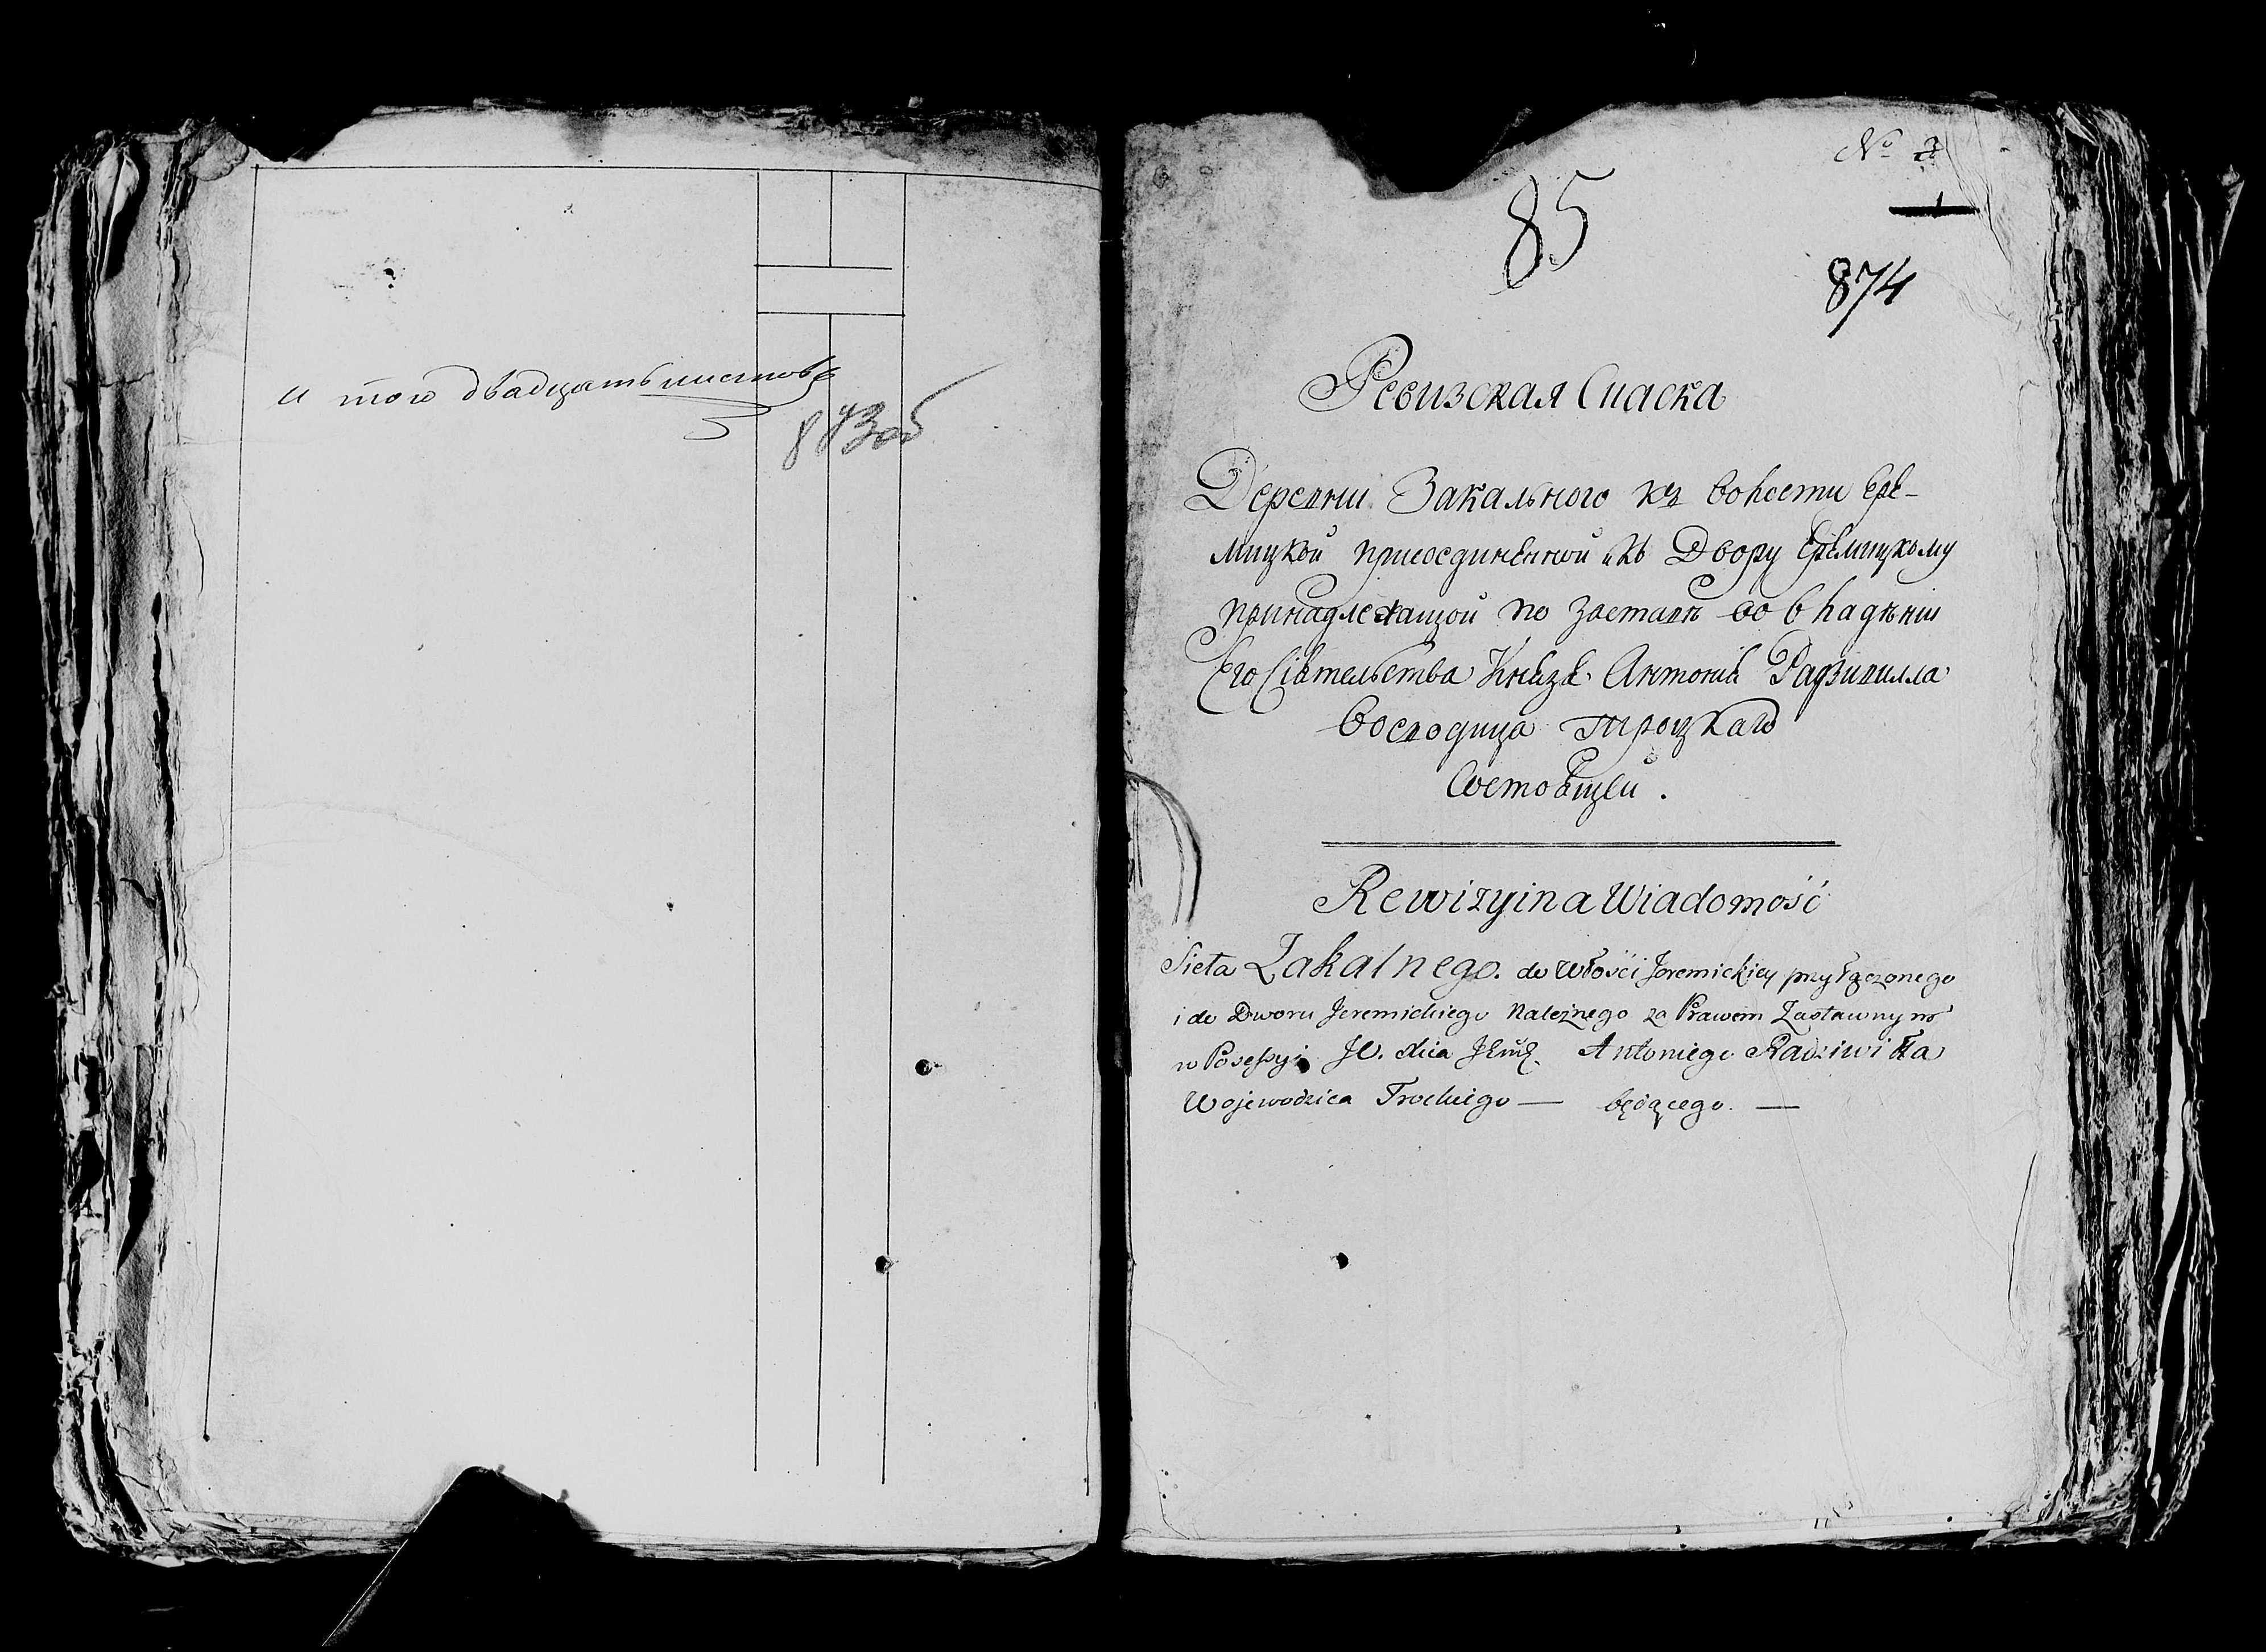 И того двадцать листовъ
873 об
№ 2
1
85
874
Ревизская Скаска
Деревни Закального къ волости Ере-
мицкой присоединенной и къ Двору Еремицкому
принадлежащой по заставѣ во владѣніи
Его Сіятельства Князя Антонія Радзивилла
Воеводица Троцкаго
Состоящей.
Rewizyina Wiadomość
Sieła Zakalnego. do Włości Jeremickiey przyłączonego
i do Dworu Jeremickiego Należnego za Prawem Zastawnym
w Possessyi JO. Xcia Antoniego Radziwiłła
Wojewodzica Trockiego — będącego. —